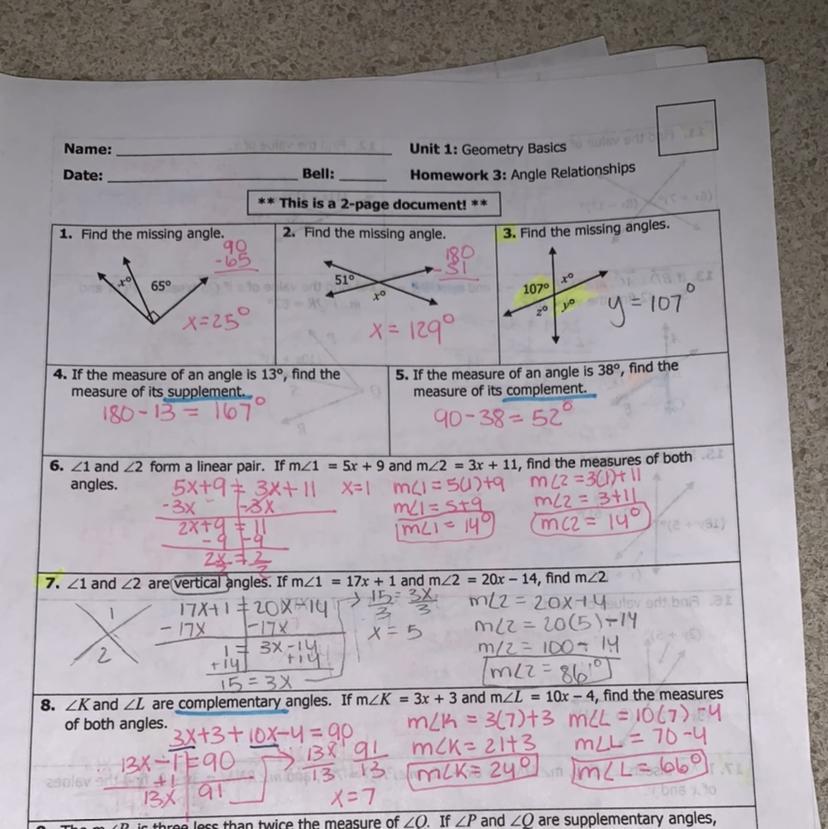 Name: Unit 1: Geometry Basics
Date: Bell: Homework 3: Angle Relationships
** This is a 2-page document! **
1. Find the missing angle.
90
-65
x° 65°
x=25°
2. Find the missing angle.
180
-51
51°
x°
x = 129°
3. Find the missing angles.
107° x°
z° y°
y = 107°
4. If the measure of an angle is 13°, find the
measure of its supplement.
180-13 = 167°
5. If the measure of an angle is 38°, find the
measure of its complement.
90-38 = 52°
6. ∠1 and ∠2 form a linear pair. If m∠1 = 5x + 9 and m∠2 = 3x + 11, find the measures of both
angles.
5x+9 = 3x+11
-3x -3x
2x+9 = 11
-9 -9
2x = 2
x=1
m∠1 = 5(1)+9
m∠1 = 5+9
m∠1 = 14°
m∠2 = 3(1)+11
m∠2 = 3+11
m∠2 = 14°
7. ∠1 and ∠2 are vertical angles. If m∠1 = 17x + 1 and m∠2 = 20x – 14, find m∠2
1
2
17x+1 = 20x-14
-17x -17x
1 = 3x-14
+14 +14
15 = 3x
15 = 3x
3 3
x = 5
m∠2 = 20x-14
m∠2 = 20(5)-14
m∠2 = 100-14
m∠2 = 86°
8. ∠K and ∠L are complementary angles. If m∠K = 3x + 3 and m∠L = 10x – 4, find the measures
of both angles.
3x+3+10x-4=90
13x-1=90
+1
13x 91
13x 91
13 13
x=7
m∠K = 3(7)+3
m∠K = 21+3
m∠K = 24°
m∠L = 10(7)-4
m∠L = 70-4
m∠L = 66°
is three less than twice the measure of ∠Q. If ∠P and ∠Q are supplementary angles,